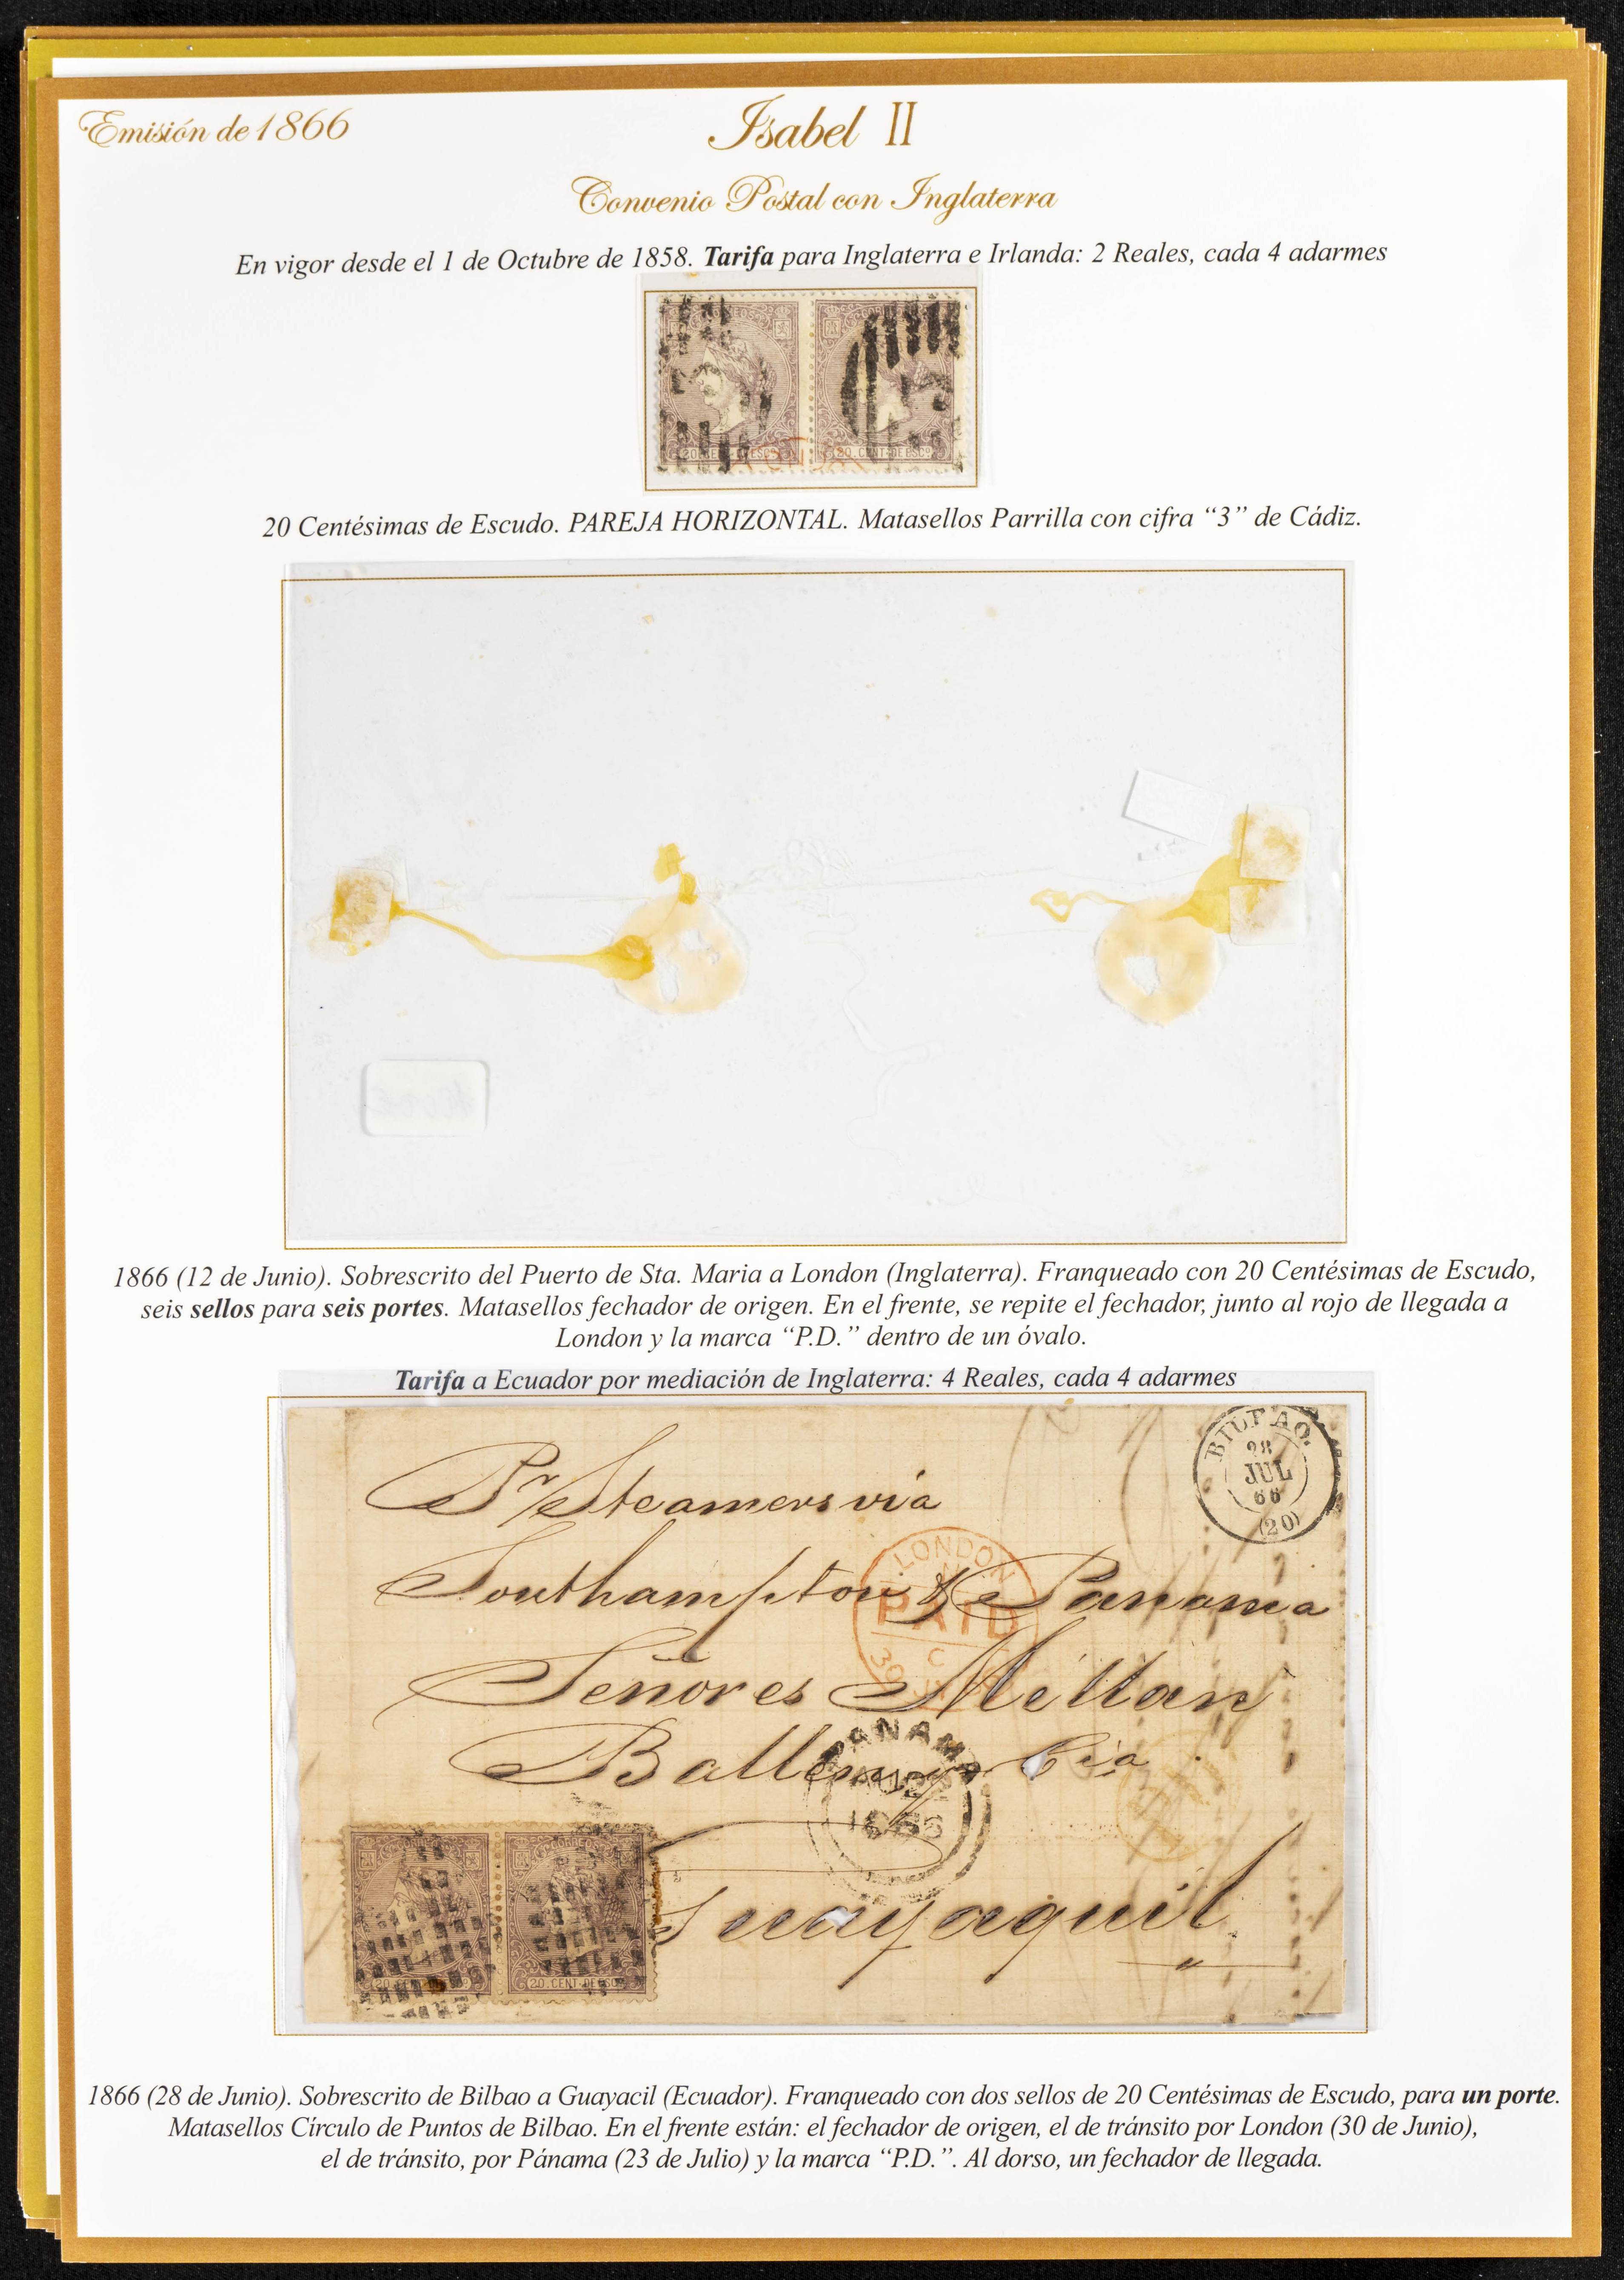 Emisión de 1866
Isabel II
Convenio Postal con Inglaterra
En vigor desde el 1 de Octubre de 1858. Tarifa para Inglaterra e Irlanda: 2 Reales, cada 4 adarmes
20. CENT. DE ESCº
20 Centésimas de Escudo. PAREJA HORIZONTAL. Matasellos Parrilla con cifra “3” de Cádiz.
1866 (12 de Junio). Sobrescrito del Puerto de Sta. Maria a London (Inglaterra). Franqueado con 20 Centésimas de Escudo,
seis sellos para seis portes. Matasellos fechador de origen. En el frente, se repite el fechador, junto al rojo de llegada a
London y la marca “P.D.” dentro de un óvalo.
Tarifa a Ecuador por mediación de Inglaterra: 4 Reales, cada 4 adarmes
BILBAO.
28
JUL
66
(20)
Pr/ Steamers via
LONDON
Southampton & Panama
PAID
C
30
Señores Millan
PANAMA
Ballen y Cia
1866
Guayaquil
20. CENT. DE ESCº
1866 (28 de Junio). Sobrescrito de Bilbao a Guayacil (Ecuador). Franqueado con dos sellos de 20 Centésimas de Escudo, para un porte.
Matasellos Círculo de Puntos de Bilbao. En el frente están: el fechador de origen, el de tránsito por London (30 de Junio),
el de tránsito, por Pánama (23 de Julio) y la marca “P.D.”. Al dorso, un fechador de llegada.